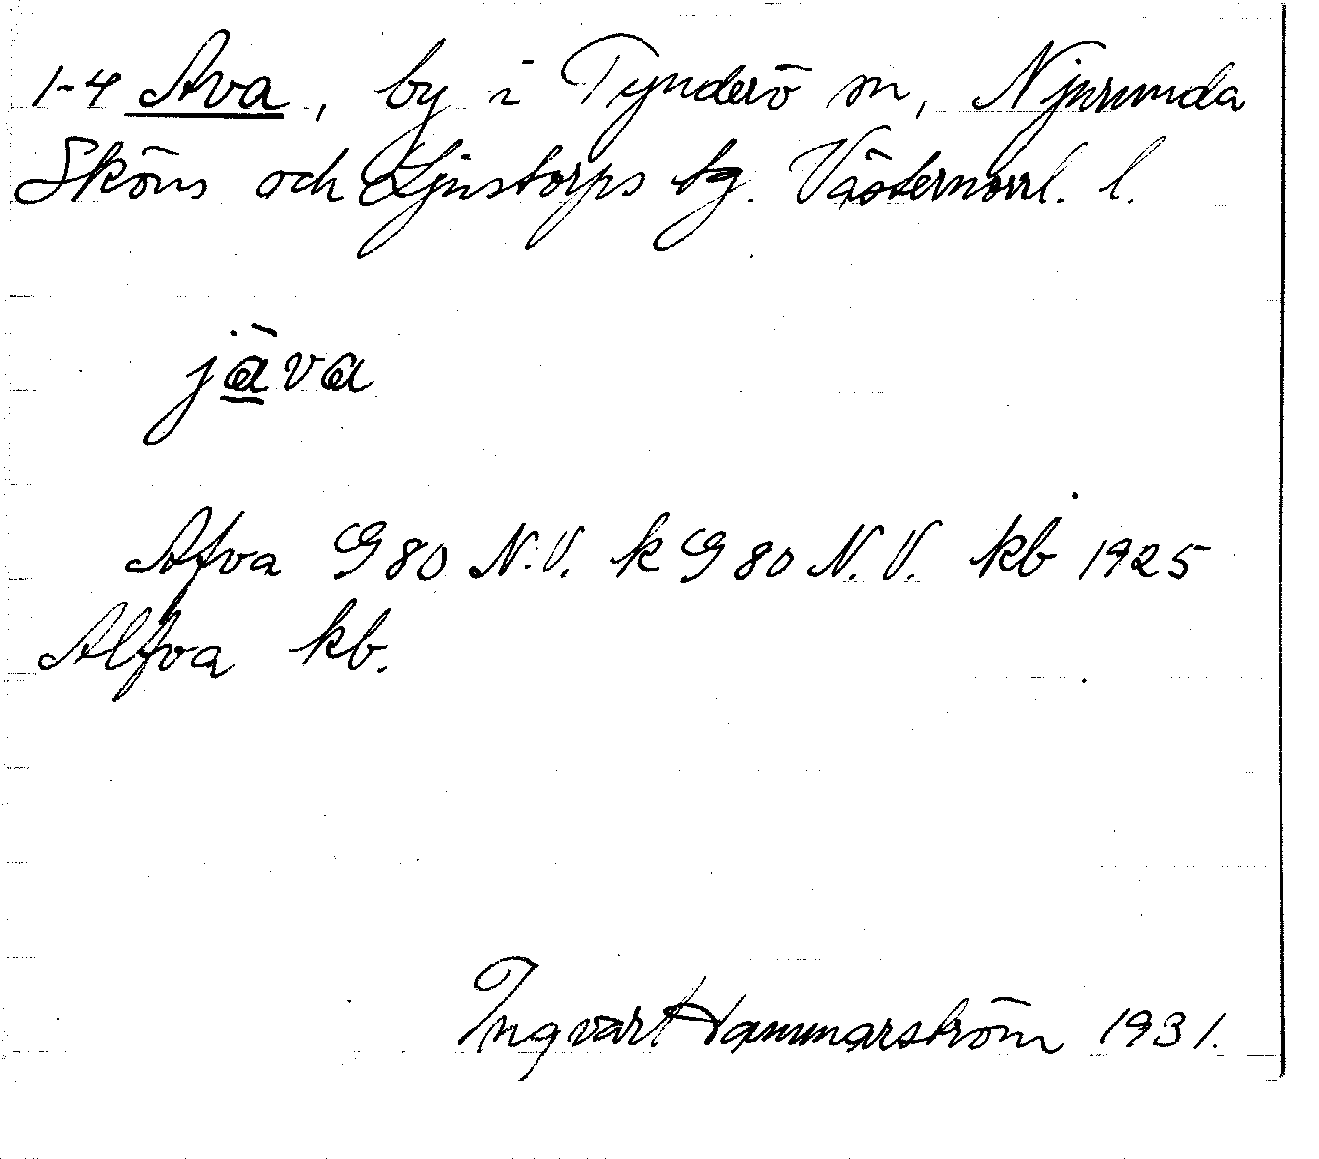 1-4 Ava, by i Tynderö sn, Njurunda
Sköns och Ljustorps tg. Västernorrl. l.
java
Afva G 80 N.V. k G 80 N.V. kb 1925
Alfva kb.
Ingvart Hammarström 1931.